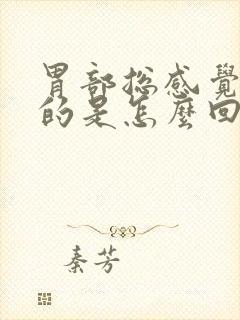 胃部总感覺
的是怎麼回
秦芳